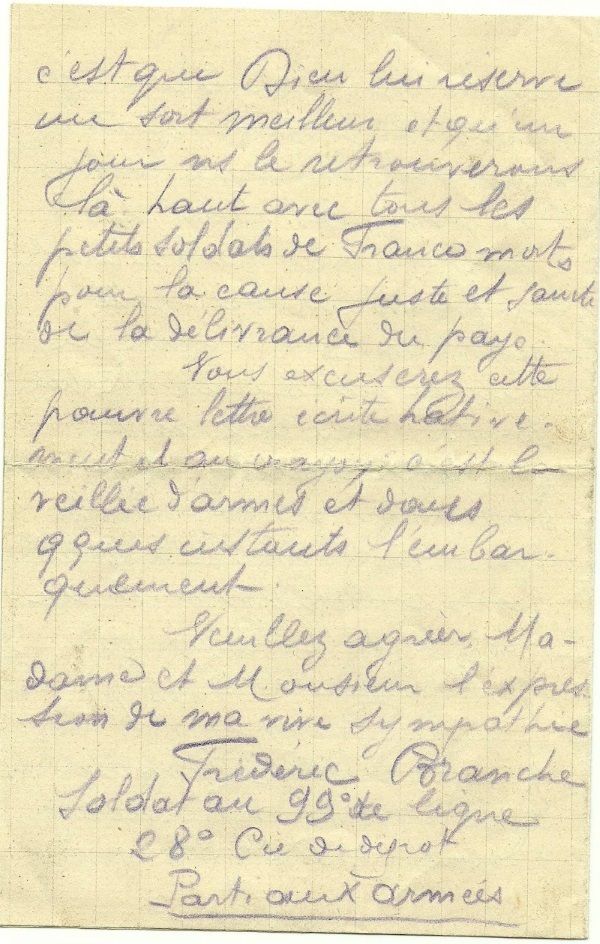 c'est que Dieu lui réserve
un sort meilleur et qu'un
jour ns le retrouverons
là-haut avec tous les
petits soldats de France morts
pour la cause juste et sainte
de la délivrance du pays.
Vous excuserez cette
pauvre lettre écrite hâtive-
ment et au crayon c'est la
veillée d'armes et dans
qques instants l'embar-
quement.
Veuillez agréer, Ma-
dame et Monsieur l'expres-
sion de ma vive sympathie
Frédéric Branche
Soldat au 99e de ligne
28e Cie de dépot
Parti aux armées